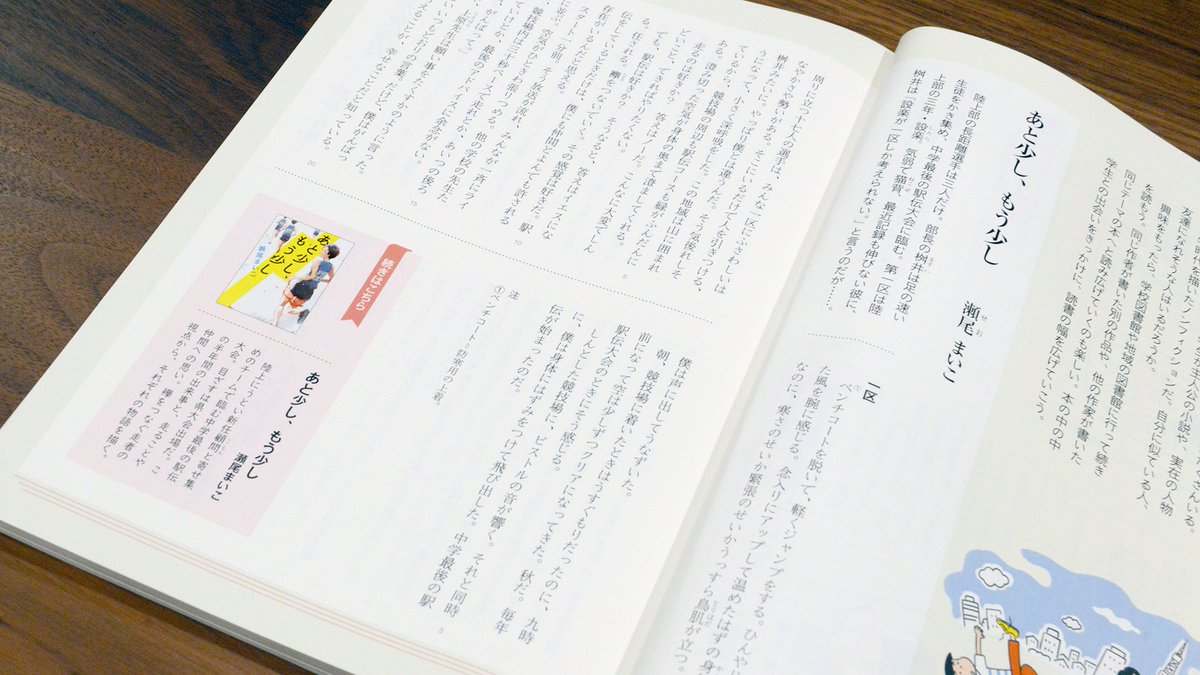 友達になれそうな人はいるだろうか。自分に似ている人、
興味をもったら、学校図書館や地域の図書館に行って続き
を読もう。同じ作者が書いた別の作品や、他の作家が書いた
同じテーマの本へと読み広げていくのも楽しい。本の中の中
学生との出会いをきっかけに、読書の幅を広げていこう。
あと少し、もう少し
瀬尾 まいこ
陸上部の長距離選手は三人だけ。部長の桝井は足の速い
生徒をかき集め、中学最後の駅伝大会に臨む。第一区は陸
上部の三年・設楽。気弱で猫背、最近記録も伸びない彼に、
桝井は「設楽が一区しか考えられない。」と言うのだが……。
一区
①ベンチコートを脱いで、軽くジャンプをする。ひんやり
た風を腕に感じる。念入りにアップして温めたはずの身
なのに、寒さのせいか緊張のせいかうっすら鳥肌が立つ。
周りに立つ十七人の選手は、みんな一区にふさわしい
なやかさや勢いがある。そこにいるだけで人を引きつける、
桝井みたいに。
ているから、小さく深呼吸をした。この地域は山に囲まれ
ある。澄み切った空気が身体の奥まで澄ましてくれる。
走るのは好きか?
ても、できればやりたくない。こんなに大変でしん
どいこと、
る。駅伝は好きか?
任される。襷をつないでいく。その感覚は好きだ。駅
伝をしているときだけは、僕にも仲間とよんでも許される
存在がいるんだと思える。
スタート一分前。そう放送が流れ、みんなが一斉にライ
に並ぶ。空気がひときわ張りつめる。
競技場内は三千秒ペースで走れだとか、あいつの後ろ
ていけだとか、最後のアドバイスに余念がない。
がんばって。
上原先生は願い事をたくすかのように言った。
いつもどおりの言葉。だけど、僕はがんばっ
えることが、幸せなことだと知っている。
僕は声に出してうなずいた。
朝、競技場に着いたときはうすぐもりだったのに、九時
前になって空は少しずつクリアになってきた。秋だ。毎年
駅伝大会のときにそう感じる。
しんとした競技場に、ピストルの音が響く。それと同時
に、僕は身体にはずみをつけて飛び出した。中学最後の駅
伝が始まったのだ。
注
①ベンチコート―防寒用の上着。
続きはこちら
あと少し、
もう少し
瀬尾まいこ
あと少し、もう少し
瀬尾まいこ
陸上にうとい新任顧問と寄せ集
めのチームで臨む中学最後の駅伝
大会。目ざすは県大会出場だ。こ
の半年間の出来事と、走ることや
仲間への思い。襷をつなぐ走者の
視点から、それぞれの物語を描く。